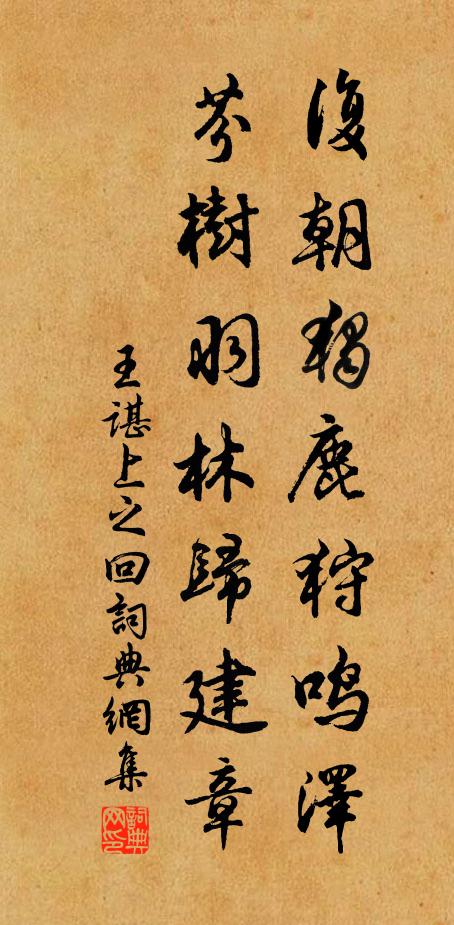 復朝獨鹿狩鳴澤
芬樹羽林歸建章
王諶上之回詞典網集
詞典网印